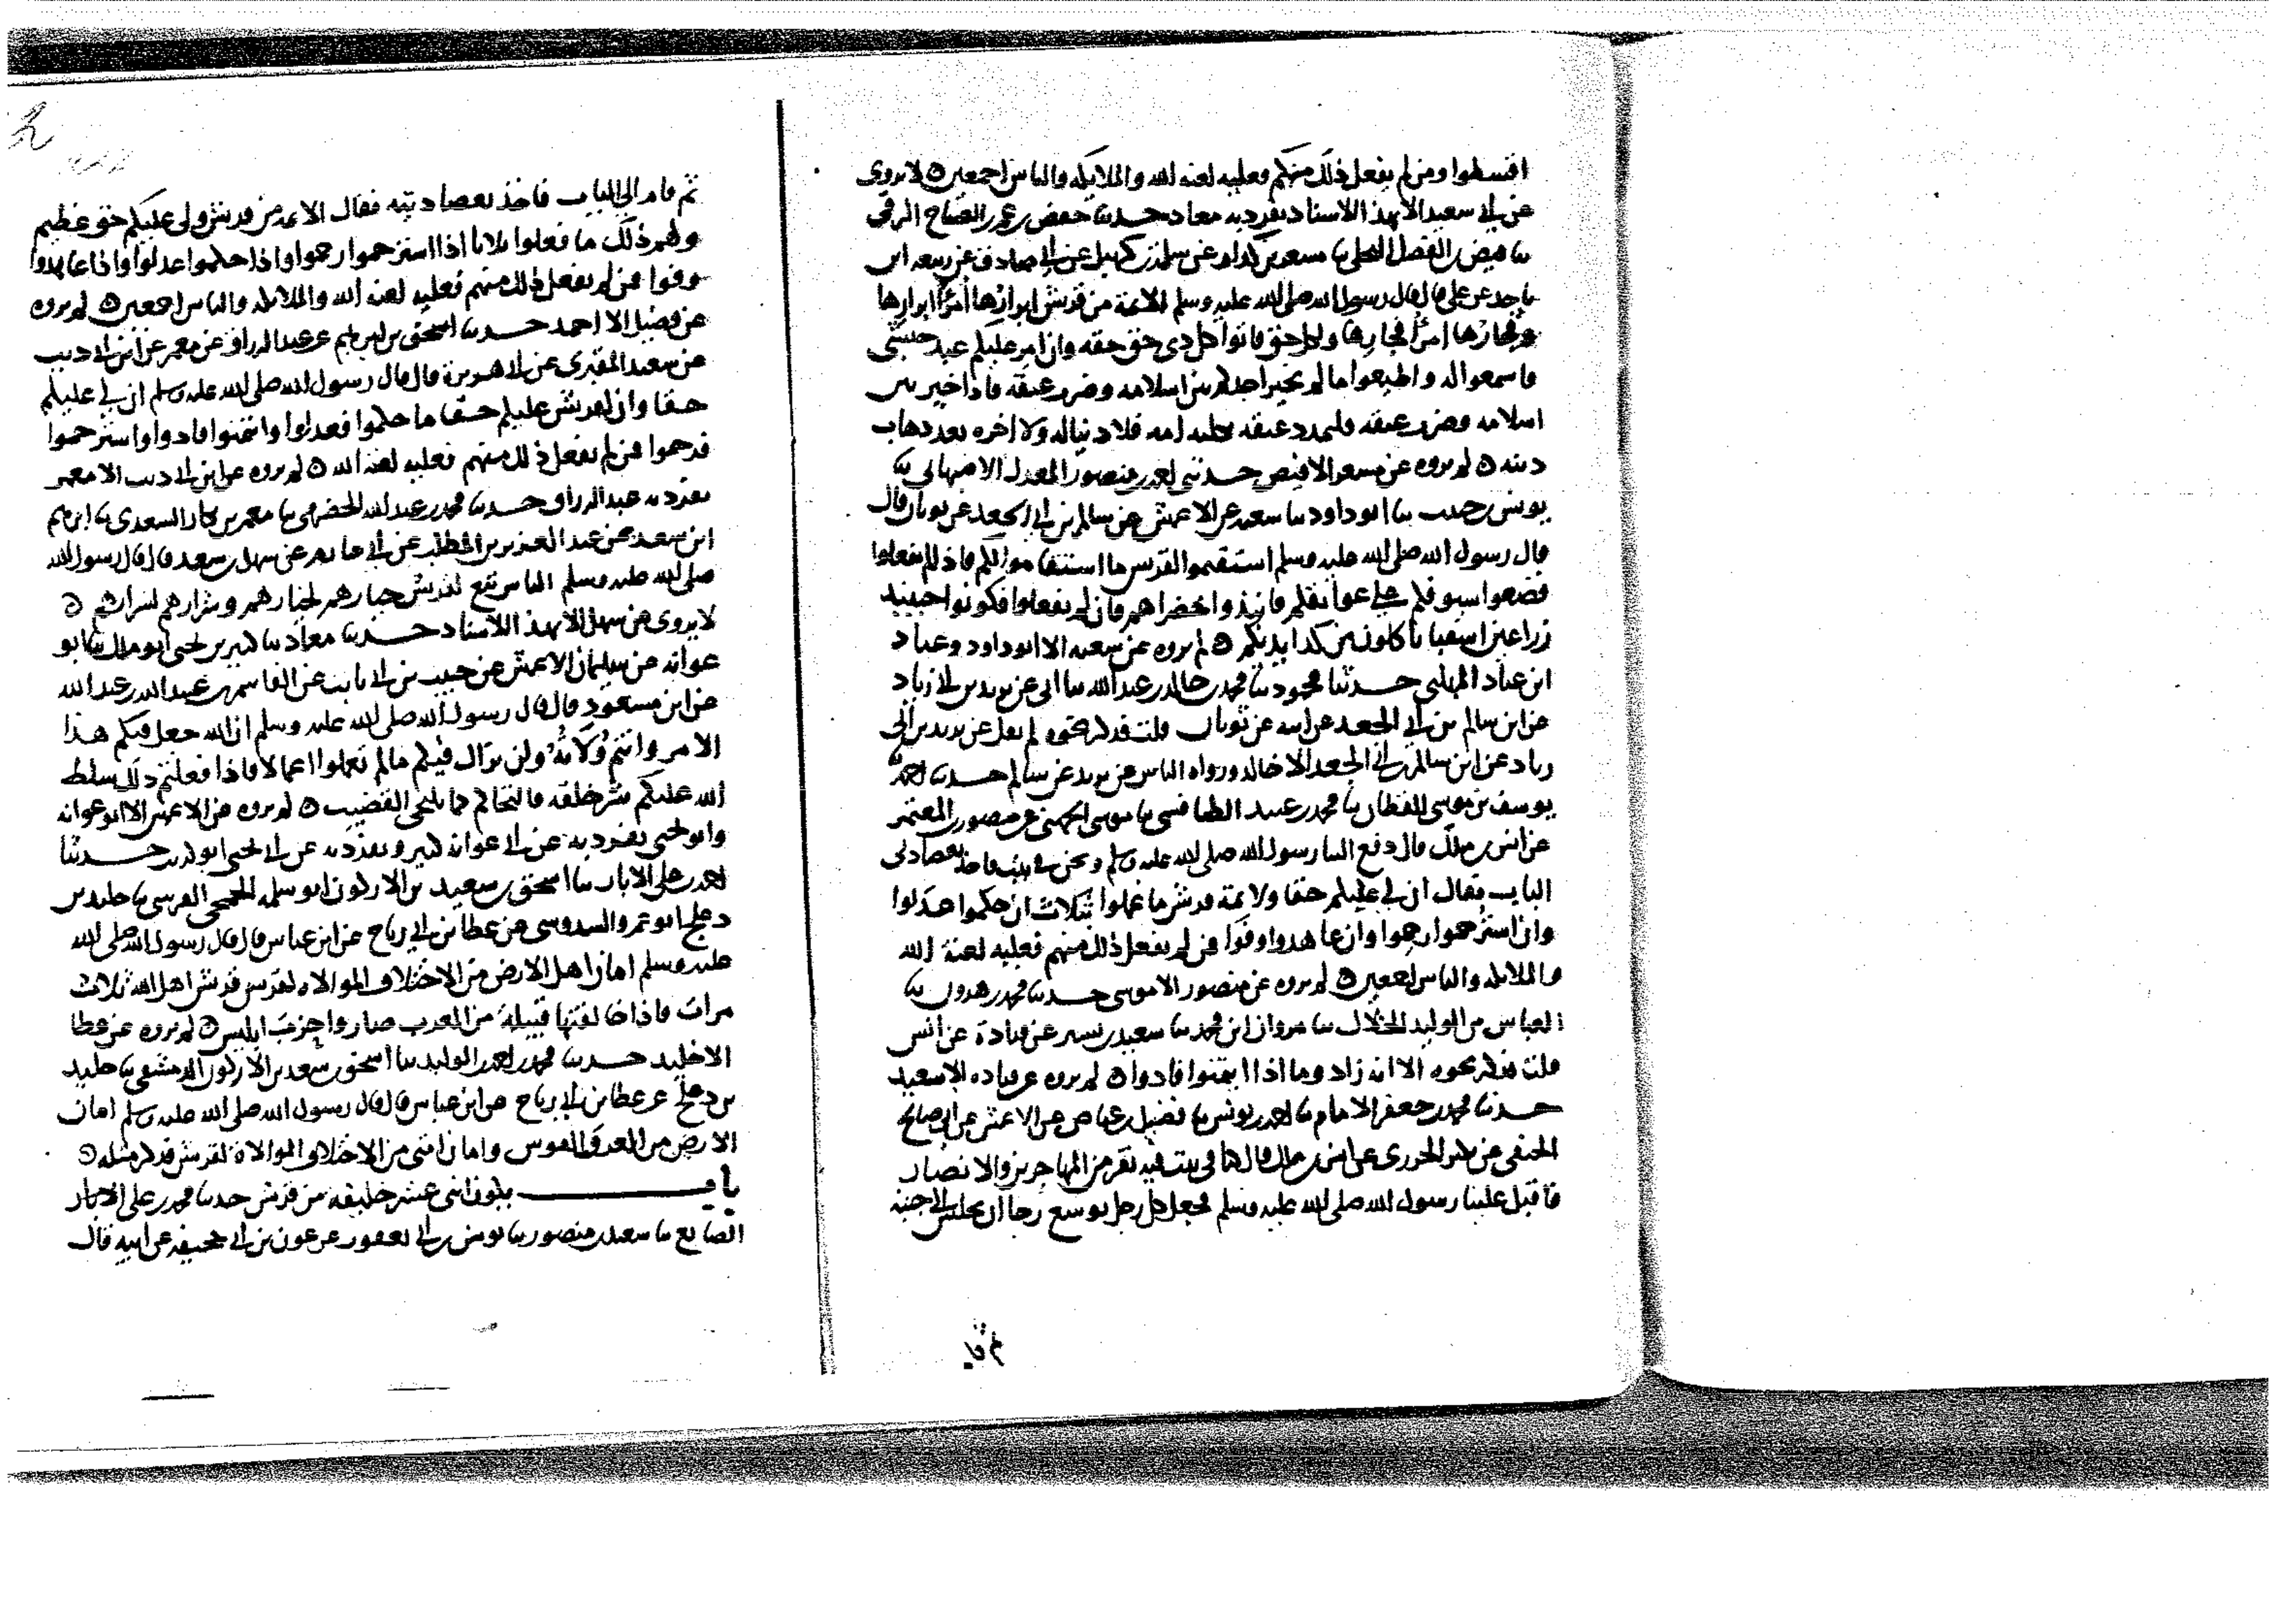 اقسطوا ومن لم يفعل ذلك منهم فعليه لعنة الله والملائكة والناس اجمعين ٥ لا يروى
عن ابي سعيد الا بهذا الاسناد تفرد به معاد حدثنا حفص بن عمر بن الصباح الرقي
ثنا فيض بن الفضل البجلي ثنا مسعر بن كدام عن سلمة بن كهيل عن ابي صادق عن ربيعة ابن
ناجد عن علي قال قال رسول الله صلى الله عليه وسلم الائمة من قريش ابرارها امرأ ابرارها
وفجارها امرأ فجارها ولكل حق فاتوا كل ذي حق حقه وان امر عليكم عبد حبشي
فاسمعوا له واطيعوا ما لم يخير احدكم بين اسلامه وضرب عنقه فاذا خير بين
اسلامه وضرب عنقه فليمدد عنقه ثكلته امه فلا دنيا له ولا اخره بعد ذهاب
دينه ٥ لم يروه عن مسعر الا فيض حدثني احمد بن منصور المعدل الاصبهاني ثنا
يونس بن حبيب ثنا ابو داود ثنا سعبه عن الاعمش عن سالم بن ابي الجعد عن ثوبان قال
قال رسول الله صلى الله عليه وسلم استقيموا لقريش ما استقاموا لكم فاذا لم يفعلوا
فضعوا سيوفكم على عواتقكم فابيدوا خضراهم فان لم تفعلوا فكونوا حينيذ
زراعين اشقيا تاكلون من كد ايديكم ٥ لم يروه عن سعبه الا ابو داود وعباد
ابن عباد المهلبي حدثنا محمود ثنا محمد بن خالد بن عبد الله ثنا ابي عن يزيد بن ابي زياد
عن ابن سالم بن ابي الجعد عن ابيه عن ثوبان قلت فذكر نحوه لم يقل عن يزيد بن ابي
زياد عن ابن سالم بن ابي الجعد الا خالد ورواه الناس عن يزيد عن سالم حدثنا احمد بن
يوسف بن موسى القطان ثنا محمد بن عبيد الطنافسي ثنا موسى الجهني عن منصور بن المعتمر
عن انس بن ملك قال دفع الينا رسول الله صلى الله عليه وسلم ونحن في بيت فاخذ بعضادتي
الباب فقال ان لي عليكم حقا ولائمة قريش ما عملوا بثلاث ان حكموا عدلوا
وان استرحموا رحموا وان عاهدوا وفوا فمن لم يفعل ذلك منهم فعليه لعنة الله
والملائكة والناس اجمعين ٥ لم يروه عن منصور الا موسى حدثنا محمد بن هرون ثنا
العباس بن الوليد الخلال ثنا مروان ابن محمد ثنا سعيد بن بسير عن قتادة عن انس
قلت فذكر نحوه الا انه زاد وما اذا ايتمنوا فادوا ٥ لم يروه عن قتاده الا سعيد
حدثنا محمد بن جعفر الامام ثنا احمد بن يونس ثنا فضيل بن عياض عن الاعمش عن ابي صالح
الحنفي عن بكير الجزري عن انس بن مالك قال كنا في بيت فيه نفر من المهاجرين والانصار
فاقبل علينا رسول الله صلى الله عليه وسلم فجعل كل رجل يوسع رجا ان يجلس الى جنبه
ثم قام
ثم قام الى الباب فاخذ بعضادتيه فقال الائمة من قريش ولي عليكم حق عظيم
ولهم ذلك ما فعلوا ثلاثا اذا استرحموا رحموا واذا حكموا عدلوا واذا عاهدوا
وفوا فمن لم يفعل ذلك منهم فعليه لعنة الله والملائكة والناس اجمعين ٥ لم يروه
عن فضيل الا احمد حدثنا اسحق بن ابرهيم عن عبد الرزاق عن معمر عن ابن ابي ذيب
عن سعيد المقبري عن ابي هريرة قال قال رسول الله صلى الله عليه وسلم ان لي عليكم
حقا وان لقريش عليكم حقا ما حكموا فعدلوا وائتمنوا فادوا واسترحموا
فرحموا فمن لم يفعل ذلك منهم فعليه لعنة الله ٥ لم يروه عن ابن ابي ذيب الا معمر
تفرد به عبد الرزاق حدثنا محمد بن عبد الله الحضرمي ثنا معمر بن بكار السعدي ثنا ابرهيم
ابن سعد عن عبد العزيز بن المطلب عن ابي حازم عن سهل بن سعد قال قال رسول الله
صلى الله عليه وسلم الناس تبع لقريش خيارهم لخيارهم وشرارهم لشرارهم ٥
لا يروى عن سهل الا بهذا الاسناد حدثنا معاذ ثنا كثير بن يحيى ابو مالك ثنا ابو
عوانه عن سليمان الاعمش عن حبيب بن ابي ثابت عن القاسم بن عبيد الله بن عبد الله
عن ابن مسعود قال قال رسول الله صلى الله عليه وسلم ان الله جعل فيكم هذا
الامر وانتم ولاته ولن يزال فيكم ما لم تعملوا اعمالا فاذا فعلتم ذلك سلط
الله عليكم شر خلقه فالتحاكم كما يلتحى القضيب ٥ لم يروه عن الاعمش الا ابو عوانه
وابو يحيى تفرد به عن ابي عوانه كثير وتفرد به عن ابي يحيى ابو كريب حدثنا
احمد بن علي الابار ثنا اسحق بن سعيد بن الاركون ابو سلمه الجمحي القرسي ثنا خليد بن
دعلج ابو عمرو السدوسي عن عطا بن ابي رباح عن ابن عباس قال قال رسول الله صلى الله
عليه وسلم امان اهل الارض من الاختلاف الموالاه لقريش قريش اهل الله ثلاث
مرات فاذا خالفتها قبيلة من العرب صاروا حزب ابليس ٥ لم يروه عن عطا
الا خليد حدثنا محمد بن احمد بن الوليد ثنا اسحق بن سعيد بن الاركون الدمشقي ثنا خليد
بن دعلج عن عطا بن ابي رباح عن ابن عباس قال قال رسول الله صلى الله عليه وسلم امان
الارض من الغرق القوس وامان امتي من الاختلاف الموالاة لقريش فذكر مثله ٥
باب يكون اثني عشر خليفه من قريش حدثنا محمد بن علي
الصايغ ثنا سعيد بن منصور ثنا يونس بن ابي يعفور عن عون بن ابي جحيفه عن ابيه قال